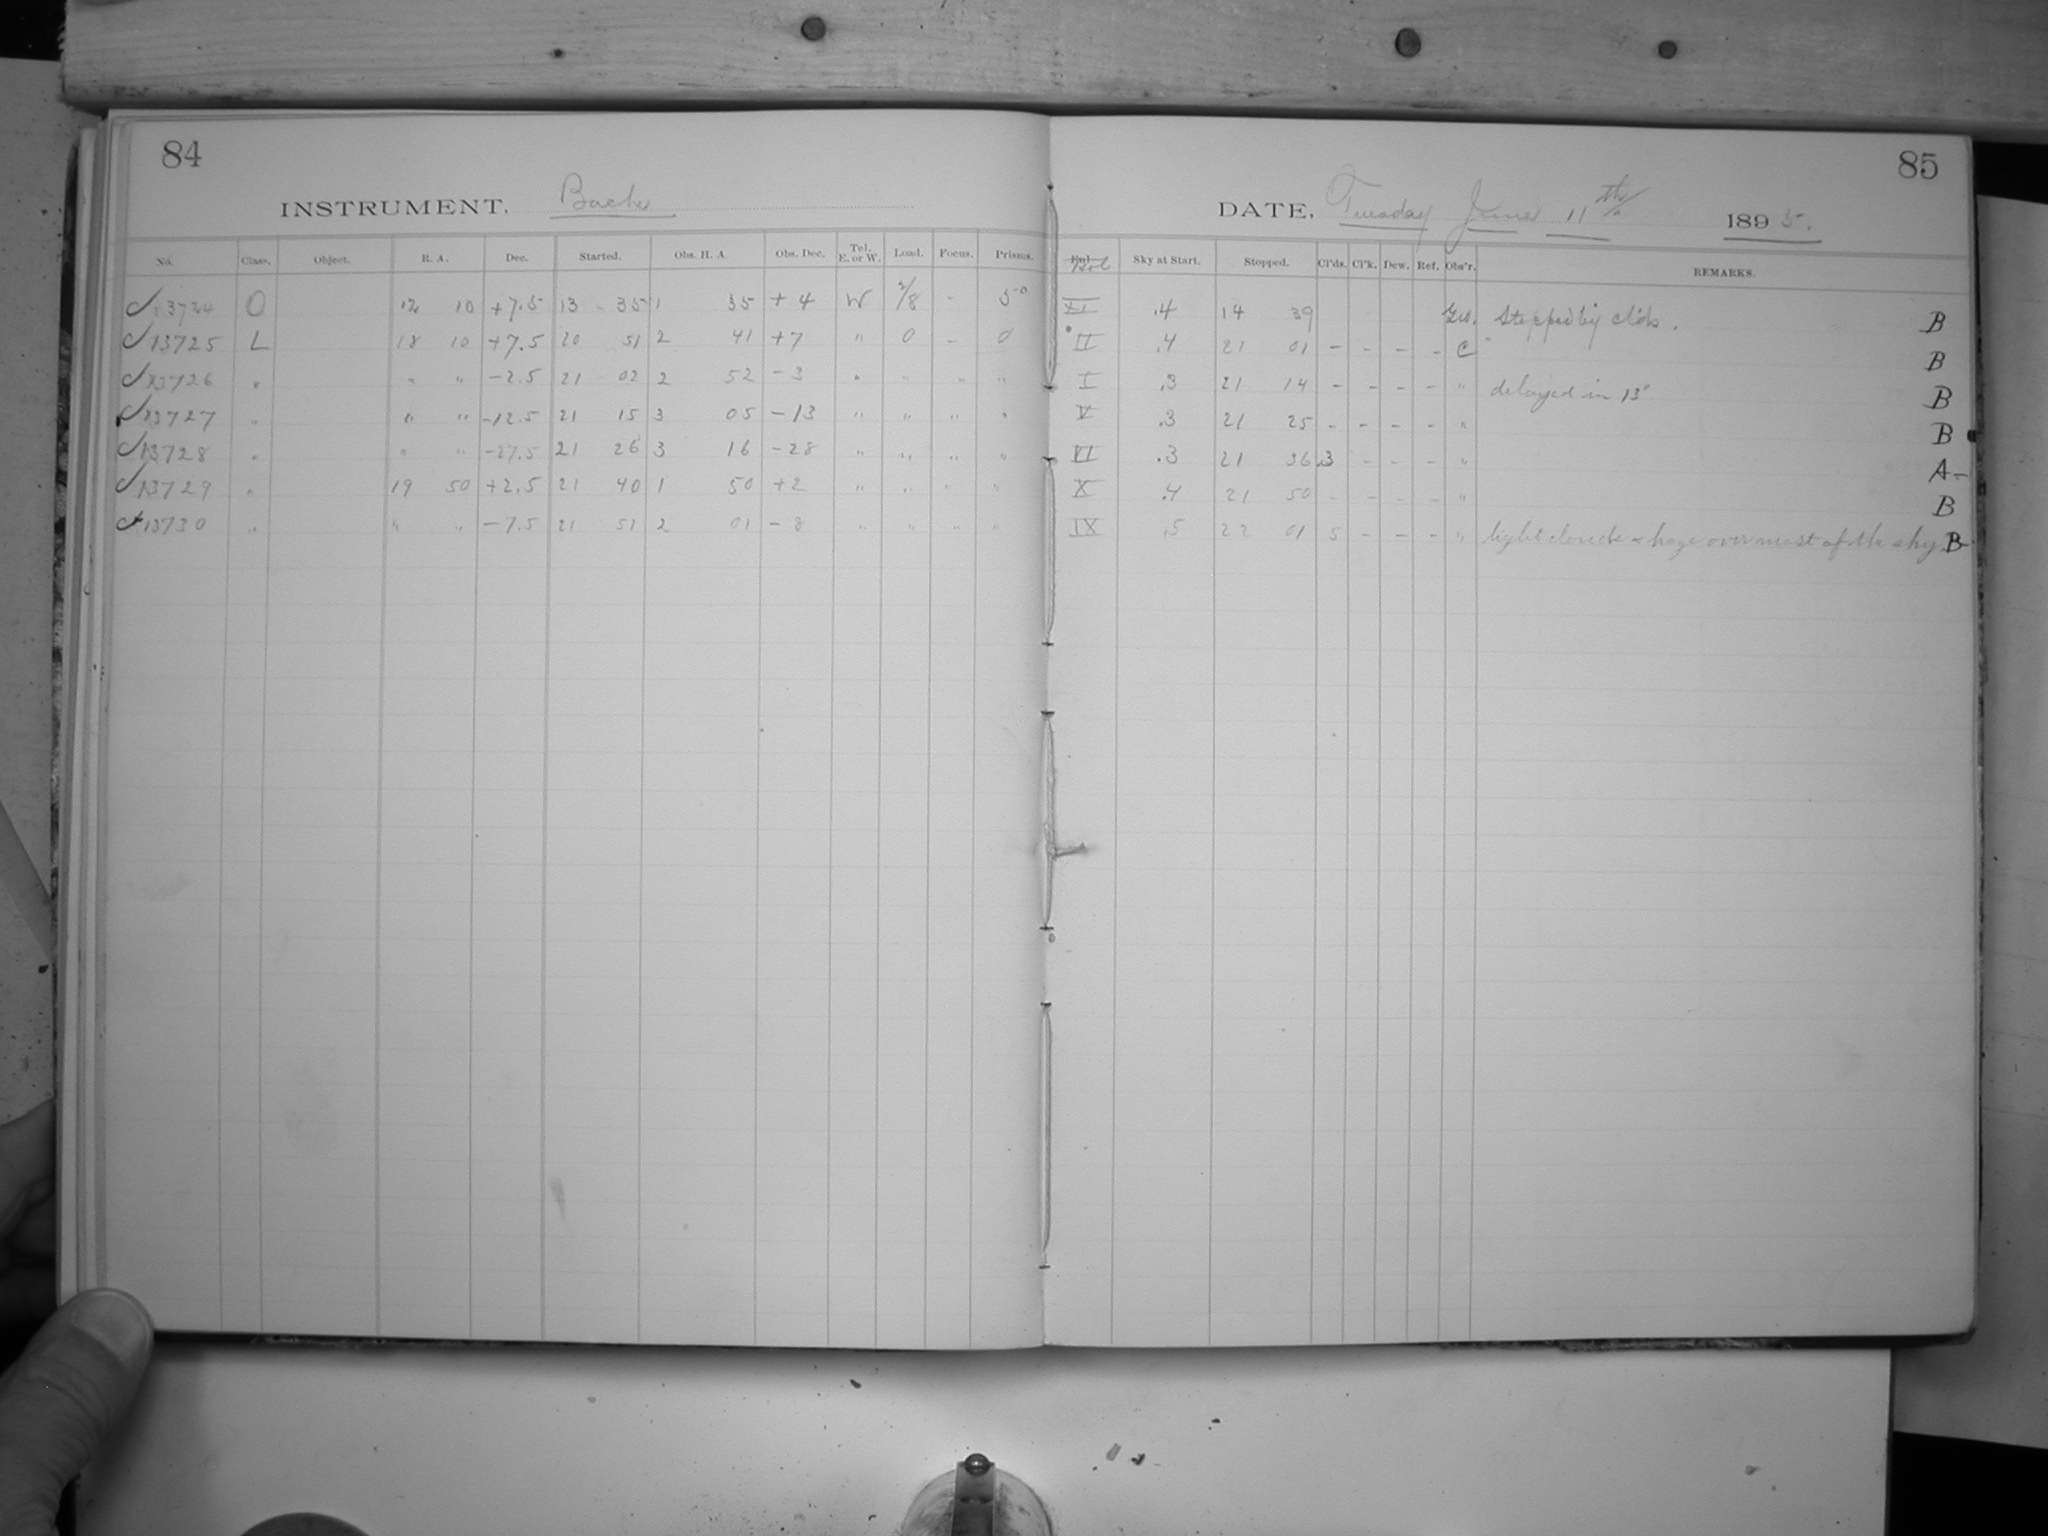 84
INSTRUMENT. Bache
No. Class. Object. R. A. Dec. Started. Obs. H. A. Obs. Dec. Tel. E. or W. Load. Focus. Prisms.
13724 O 12 10 +7.5 13 35 1 35 +4 W 2/8 - 5°
13725 L 18 10 +7.5 20 51 2 41 +7 " 0 - 0
13726 " " " -2.5 21 02 2 52 -3 " " " "
13727 " " " -12.5 21 15 3 05 -13 " " " "
13728 " " " -27.5 21 26 3 16 -28 " " " "
13729 " 19 50 +2.5 21 40 1 50 +2 " " " "
13730 " " " -7.5 21 51 2 01 -8 " " " "
85
DATE, Tuesday June 11th 1895.
Hol Sky at Start. Stopped. Cl'ds. Cl'k. Dew. Ref. Obs'r. REMARKS.
XI .4 14 39 Stopped by clds. B
II .4 21 01 - - - - C B
I .3 21 14 - - - - " delayed in 13s B
V .3 21 25 - - - - " B
VI .3 21 36 .3 - - - " A-
X .4 21 50 - - - - " B
IX .5 22 01 5 - - - " light clouds & haze over most of the sky B